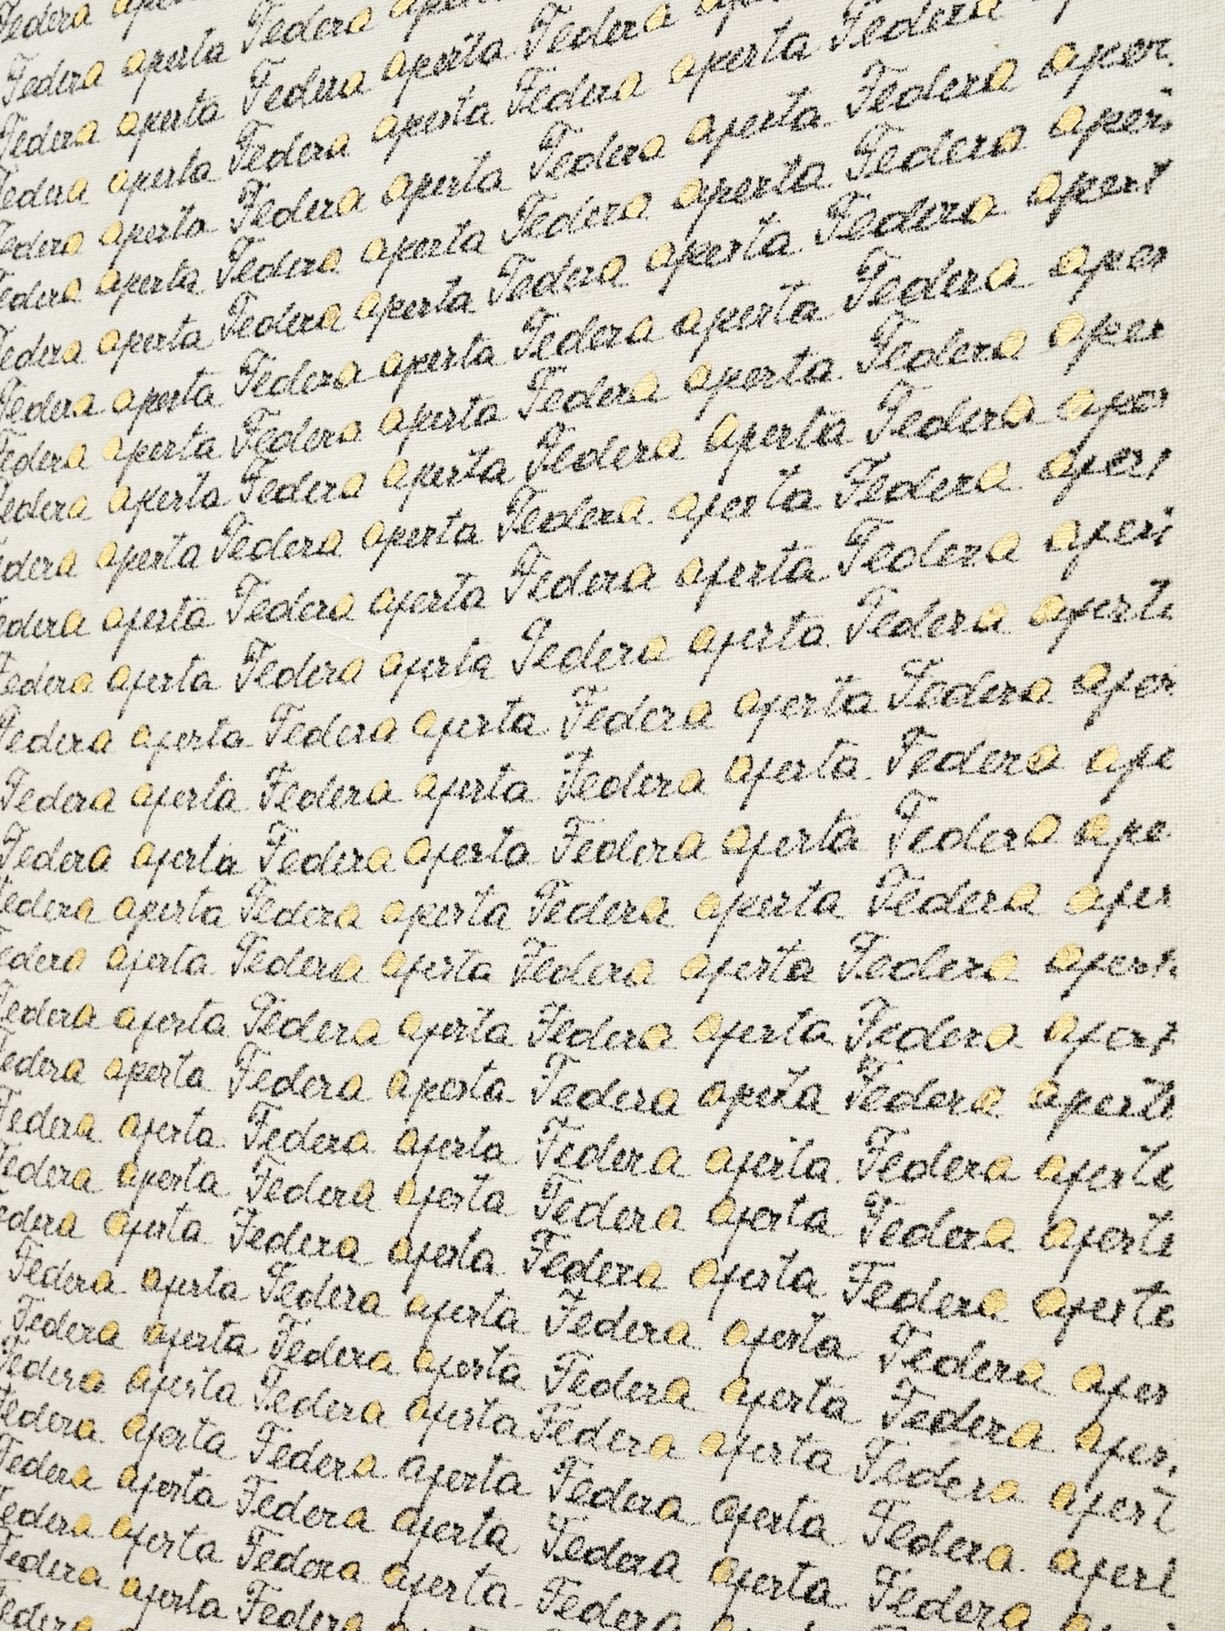 Federa aperta
Federa aperta Federa aperta Federa
Federa aperta Federa aperta Federa aperta Federa
Federa aperta Federa aperta Federa aperta Federa aper
Federa aperta Federa aperta Federa aperta Federa aper
Federa aperta Federa aperta Federa aperta Federa apert
Federa aperta Federa aperta Federa aperta Federa aper
Federa aperta Federa aperta Federa aperta Federa aper
Federa aperta Federa aperta Federa aperta Federa aper
Federa aperta Federa aperta Federa aperta Federa aper
edera aperta Federa aperta Federa aperta Federa aper
edera aperta Federa aperta Federa aperta Federa apert
Federa aperta Federa aperta Federa aperta Federa aper
Federa aperta Federa aperta Federa aperta Federa ape
Federa aperta Federa aperta Federa aperta Federa ape
Federa aperta Federa aperta Federa aperta Federa aper
edera aperta Federa aperta Federa aperta Federa apert
Federa aperta Federa aperta Federa aperta Federa apert
Federa aperta Federa aperta Federa aperta Federa aperta
Federa aperta Federa aperta Federa aperta Federa aperta
Federa aperta Federa aperta Federa aperta Federa aperta
edera aperta Federa aperta Federa aperta Federa aperta
Federa aperta Federa aperta Federa aperta Federa aper
Federa aperta Federa aperta Federa aperta Federa aper
Federa aperta Federa aperta Federa aperta Federa apert
Federa aperta Federa aperta Federa aperta Federa apert
Federa aperta Federa aperta Federa aperta Federa
Federa aperta Federa aperta Federa
Federa aperta Federa